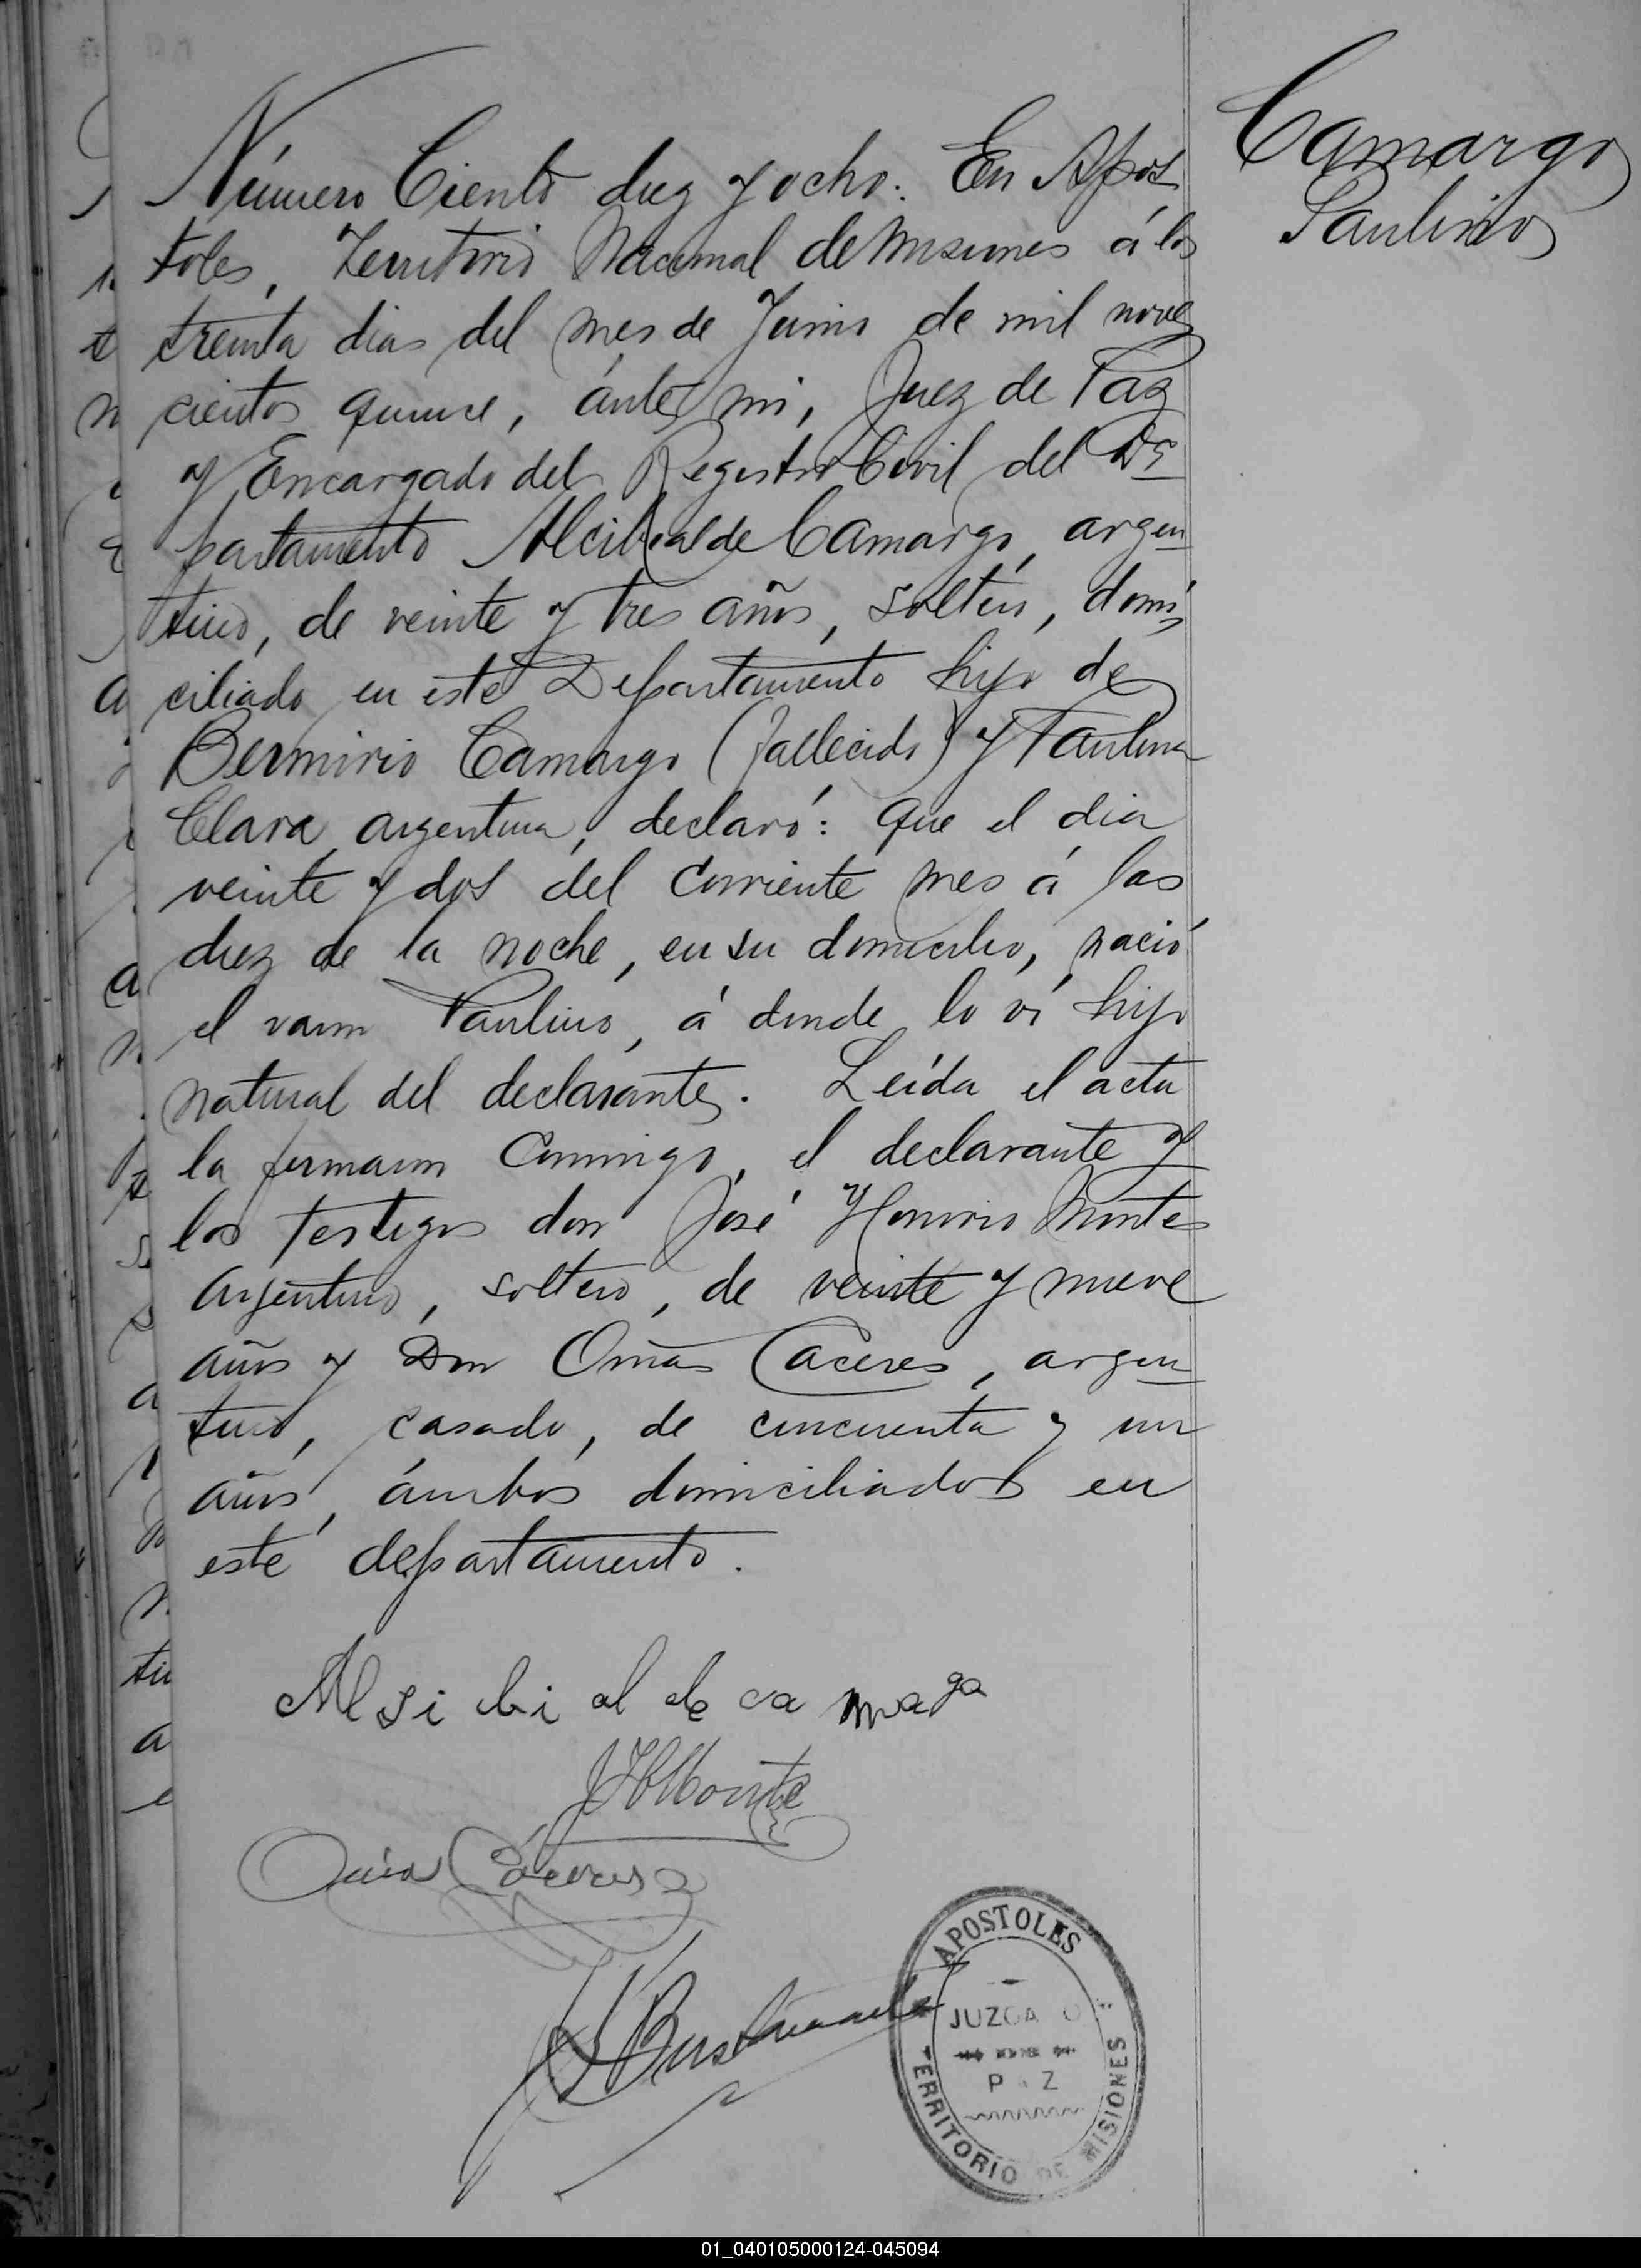 Camargo
Paulino
Número Ciento diez y ocho: En Apos
toles, Territorio Nacional de Misiones á los
treinta dias del mes de Junio de mil nove
cientos quince, ántes mi, Juez de Paz
y Encargado del Registro Civil del De
partamento Alcibial de Camargo, argen
tino, de veinte y tres años, soltero, domi
ciliado en este Departamento hijo de
Bermirio Camargo (fallecido) y Paulina
Clara argentina, declaró: Que el dia
veinte y dos del corriente mes á las
diez de la noche, en su domicilio, nació
el varon Paulino, á donde lo ví hijo
natural del declarante. Leída el acta
la firmaron conmigo, el declarante y
los testigos don José Honorio Montes
argentino, soltero, de veinte y nueve
años y Don Omás Caceres, argen
tino, casado, de cincuenta y un
años, ámbos domiciliados en
este departamento.
Alsi bi al de ca maga
JHMonte
Caceres
Bustamante
APOSTOLES
JUZGA O
P Z
TERRITORIO DE MISIONES
01_040105000124-045094